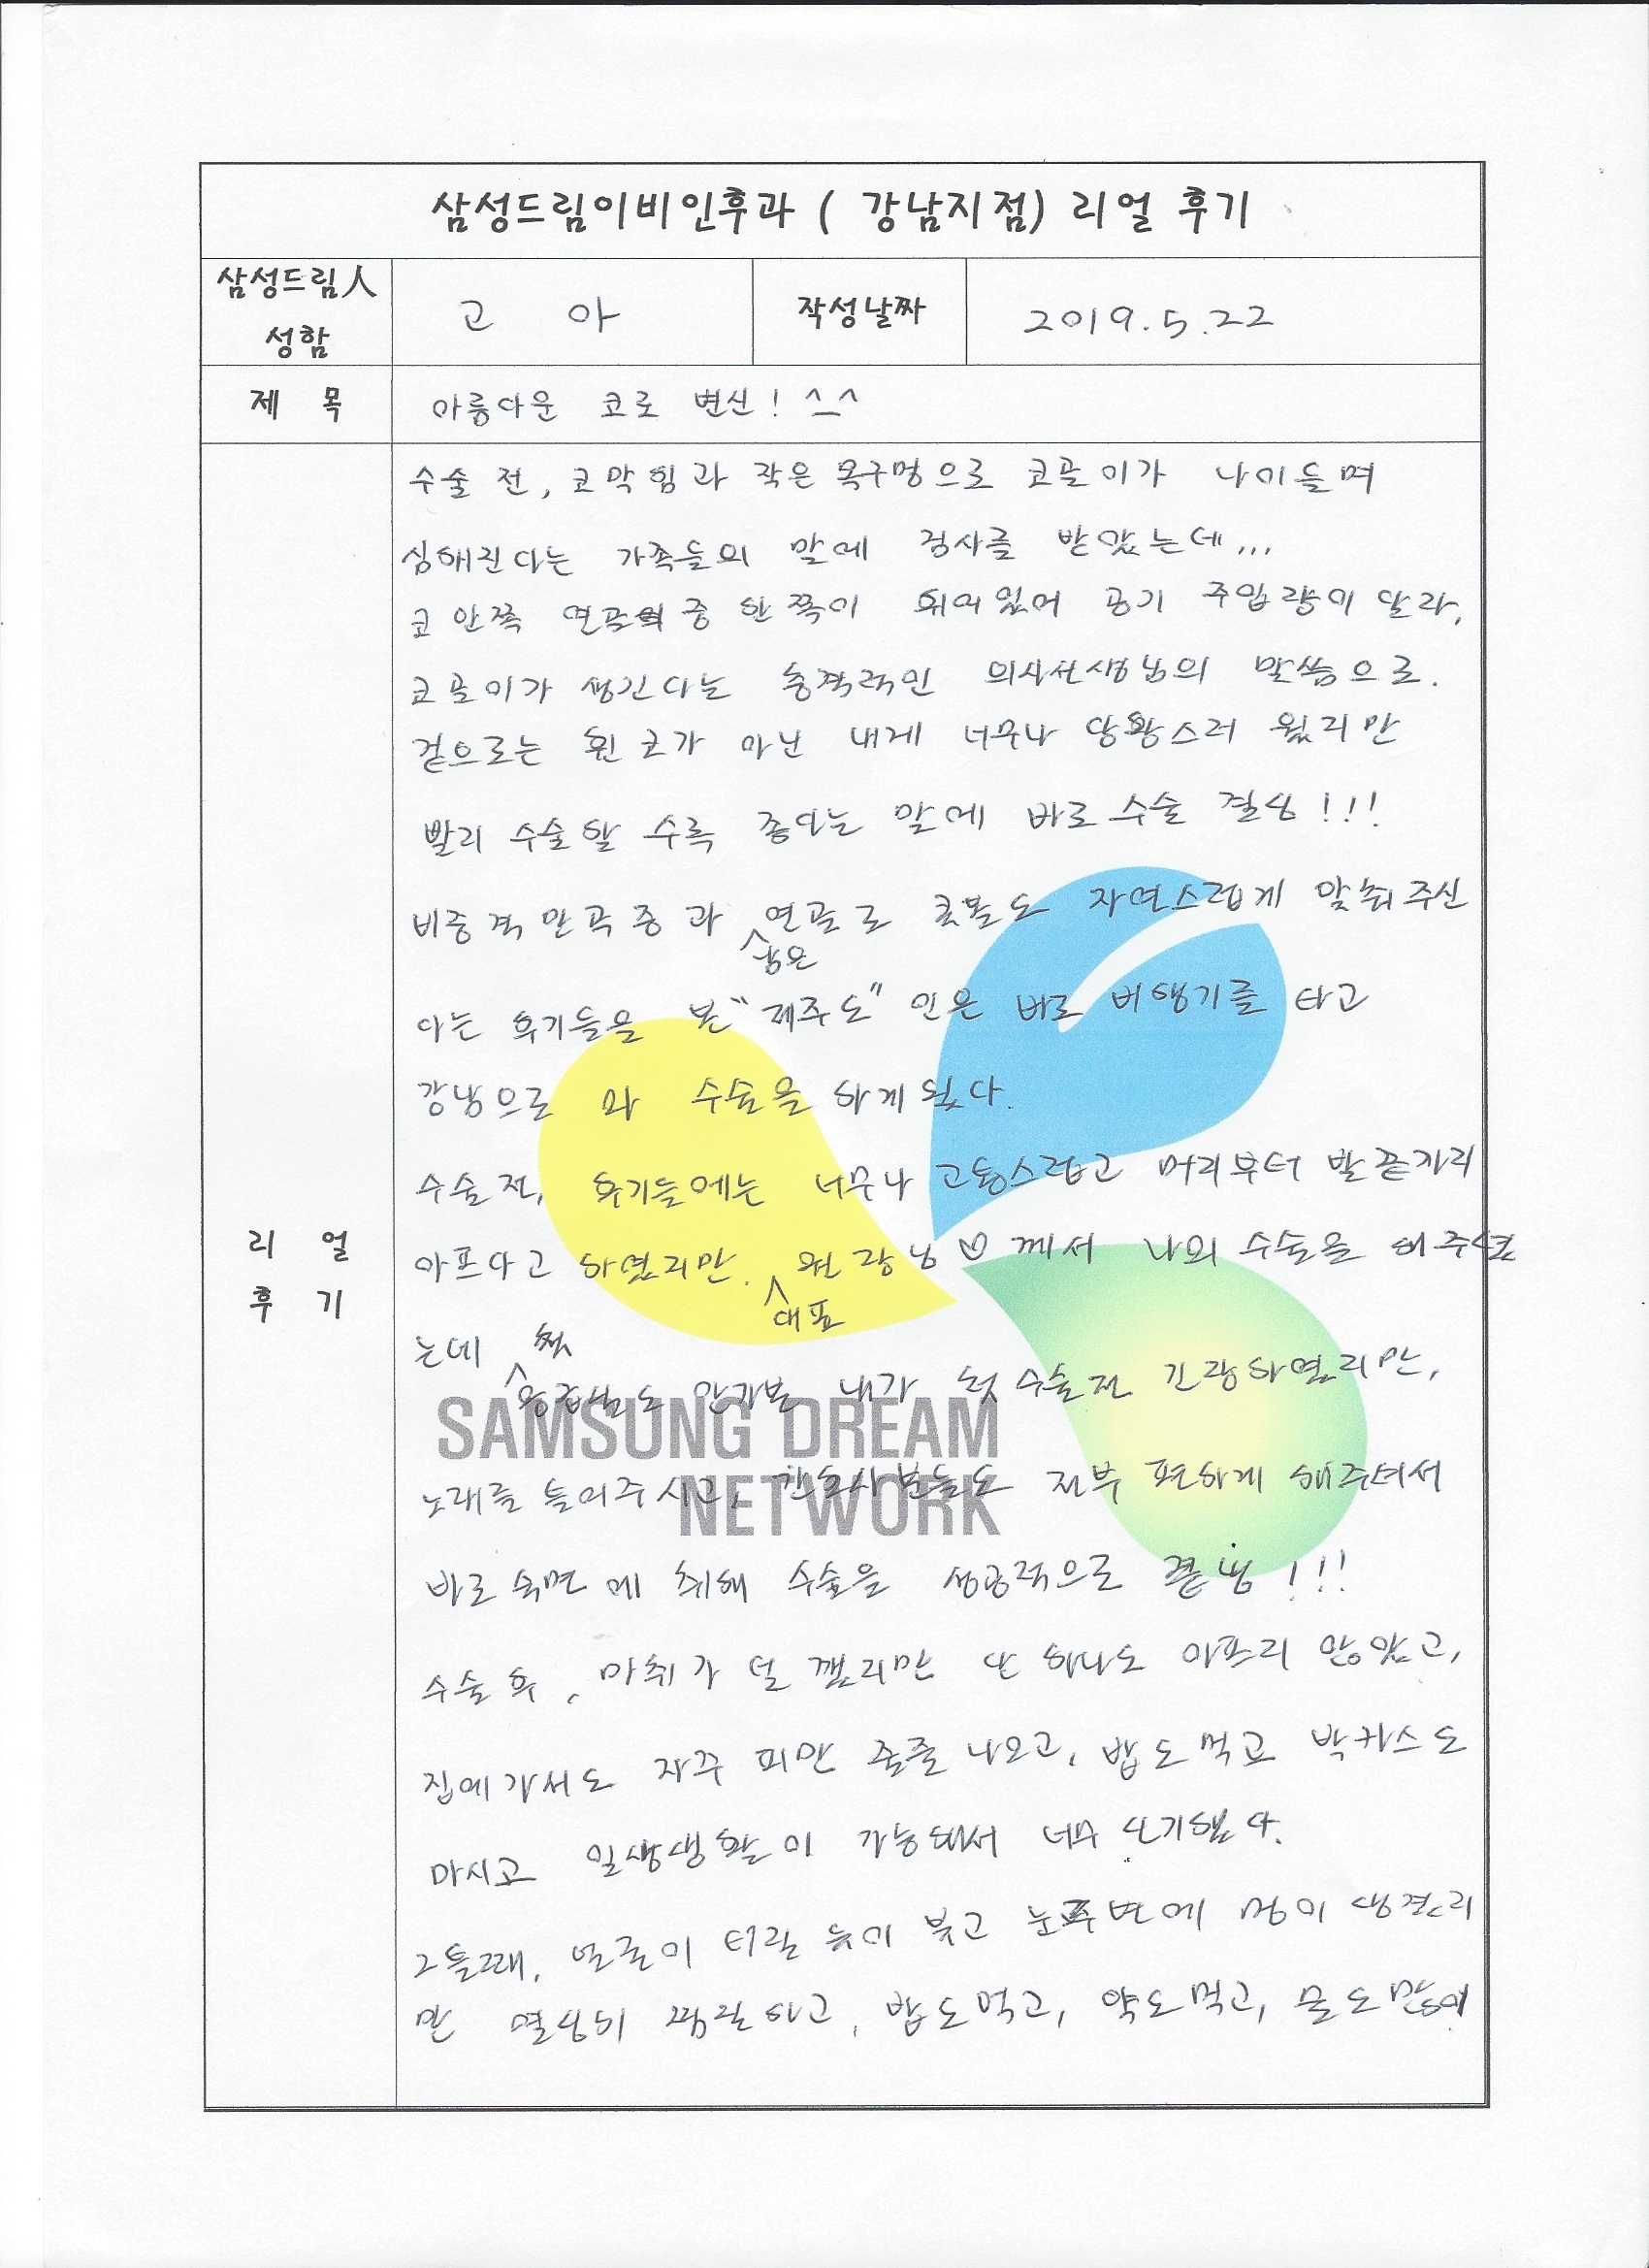 삼성드림이비인후과 ( 강남지점) 리얼 후기
삼성드림人 성함
고 아
작성날짜
2019.5.22
제 목
아름다운 코로 변신! ^_^
리 얼 후 기
수술 전, 코막힘과 작은 목구멍으로 코골이가 나이들며
심해진다는 가족들의 말에 검사를 받았는데...
코 안쪽 연골 중 한쪽이 휘어있어 공기 주입량이 달라,
코골이가 생긴다는 충격적인 의사선생님의 말씀으로.
겉으로는 휜 코가 아닌 내게 너무나 당황스러 웠지만
빨리 수술할 수록 좋다는 말에 바로 수술 결심!!!
비중격만곡증과 남은 연골로 콧볼도 자연스럽게 맞춰주신
다는 후기들을 본 "제주도" 인은 바로 비행기를 타고
강남으로 와 수술을 하게 됬다.
수술전, 후기들에는 너무나 고통스럽고 머리부터 발끝까지
아프다고 하였지만. 대표 원장님♡께서 나의 수술을 해주셨
는데 응급실도 안가본 내가 첫 수술전 긴장하였지만,
노래를 틀어주시고, 간호사분들도 전부 편하게 해주셔서
바로 숙면에 취해 수술을 성공적으로 끝냄!!!
수술 후, 마취가 덜 깼지만 단 하나도 아프지 않았고,
집에가서도 자꾸 피만 줄줄 나오고, 밥도 먹고 박카스도
마시고 일생생활이 가능해서 너무 신기했다.
2틀째, 얼굴이 터질 듯이 붓고 눈주변에 멍이 생겼지
만 열심히 찜질하고, 밥도먹고, 약도먹고, 물도많이
SAMSUNG DREAM
NETWORK